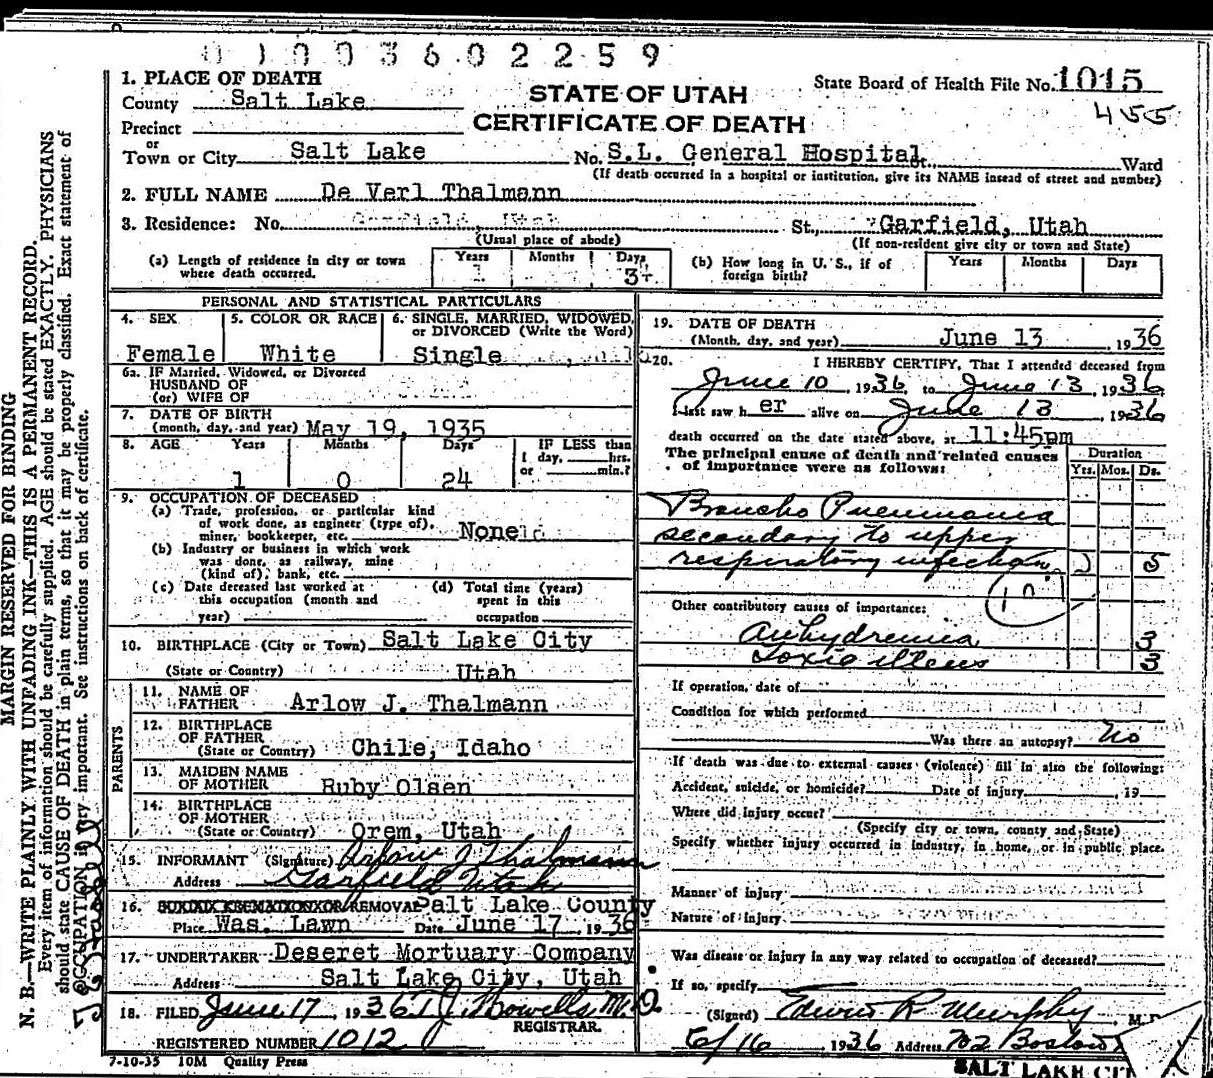 0 1 0 0 3 6 0 2 2 5 9
1. PLACE OF DEATH
County Salt Lake
STATE OF UTAH
State Board of Health File No. 1015
455
Precinct
CERTIFICATE OF DEATH
or
Town or City Salt Lake No. S.L. General Hospital St., Ward
(If death occurred in a hospital or institution, give its NAME instead of street and number)
2. FULL NAME De Verl Thalmann
3. Residence: No. Garfield, Utah St., Garfield, Utah
(Usual place of abode) (If non-resident give city or town and State)
(a) Length of residence in city or town where death occurred. Years 1 Months Days 3+
(b) How long in U. S., if of foreign birth? Years Months Days
PERSONAL AND STATISTICAL PARTICULARS
4. SEX 5. COLOR OR RACE 6. SINGLE, MARRIED, WIDOWED,
or DIVORCED (Write the Word)
Female White Single
6a. IF Married, Widowed, or Divorced
HUSBAND OF
(or) WIFE OF
7. DATE OF BIRTH
(month, day, and year) May 19, 1935
8. AGE Years Months Days IF LESS than
1 day, hrs.
or min.?
1 0 24
9. OCCUPATION OF DECEASED
(a) Trade, profession, or particular kind
of work done, as engineer (type of),
miner, bookkeeper, etc. None
(b) Industry or business in which work
was done, as railway, mine
(kind of), bank, etc.
(c) Date deceased last worked at
this occupation (month and
year)
(d) Total time (years)
spent in this
occupation
10. BIRTHPLACE (City or Town) Salt Lake City
(State or Country) Utah
PARENTS
11. NAME OF
FATHER Arlow J. Thalmann
12. BIRTHPLACE
OF FATHER
(State or Country) Chile, Idaho
13. MAIDEN NAME
OF MOTHER Ruby Olsen
14. BIRTHPLACE
OF MOTHER
(State or Country) Orem, Utah
15. INFORMANT (Signature) Arlow J Thalmann
Address Garfield Utah
16. BURIAL CREMATION OR REMOVAL Salt Lake County
Place Was. Lawn Date June 17, 1936
17. UNDERTAKER Deseret Mortuary Company
Address Salt Lake City, Utah
18. FILED June 17, 1936 T J Howells M.D.
REGISTRAR.
REGISTERED NUMBER 1012
7-10-35 10M Quality Press
19. DATE OF DEATH
(Month, day, and year) June 13, 1936
20. I HEREBY CERTIFY, That I attended deceased from
June 10, 1936 to June 13, 1936
I last saw h er alive on June 13, 1936
death occurred on the date stated above, at 11:45pm
The principal cause of death and related causes
of importance were as follows:
Duration
Yrs. Mos. Ds.
Broncho Pneumonia
secondary to upper
respiratory infection 5
Other contributory causes of importance:
Anhydremia 3
Toxic illeus 3
If operation, date of
Condition for which performed
Was there an autopsy? No
If death was due to external causes (violence) fill in also the following:
Accident, suicide, or homicide? Date of injury , 19
Where did injury occur?
(Specify city or town, county and State)
Specify whether injury occurred in industry, in home, or in public place.
Manner of injury
Nature of injury
Was disease or injury in any way related to occupation of deceased?
If so, specify
(Signed) Edwin R Murphy, M.D.
6/16 1936 Address 702 Boston
SALT LAKE CIT
MARGIN RESERVED FOR BINDING
N. B.—WRITE PLAINLY WITH UNFADING INK—THIS IS A PERMANENT RECORD.
Every item of information should be carefully supplied. AGE should be stated EXACTLY. PHYSICIANS
should state CAUSE OF DEATH in plain terms, so that it may be properly classified. Exact statement of
OCCUPATION is very important. See instructions on back of certificate.